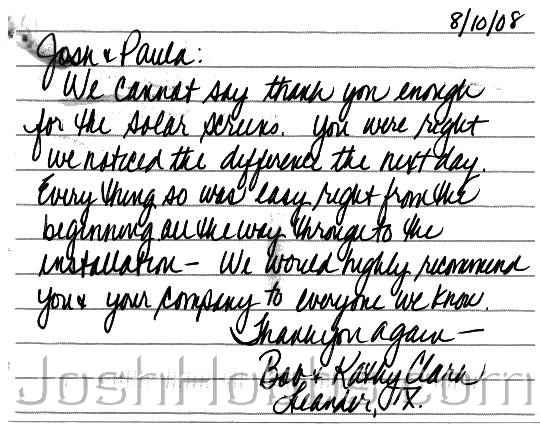 8/10/08
Josh & Paula:
We cannot say thank you enough
for the solar screens. You were right
we noticed the difference the next day.
Every thing so was easy right from the
beginning all the way through to the
installation - We would highly recommend
you & your company to everyone we know.
Thank you again -
Bob & Kathy Clark
Leander, TX.